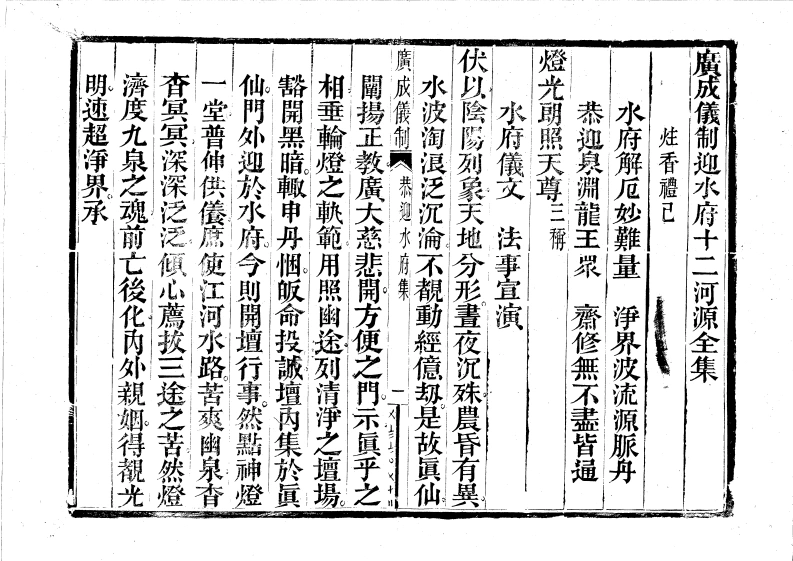 廣成儀制迎水府十二河源全集
炷香禮已
水府解厄妙難量　淨界波流源脈丹
恭迎泉淵龍王衆　齋修無不盡皆通
燈光朗照天尊三稱
水府儀文　法事宣演
伏以陰陽列象天地分形晝夜沉殊農昏有異
水波淘浪泛沉淪不覩動經億刼是故眞仙
廣成儀制　恭迎水府集　一
闡揚正教廣大慈悲開方便之門示眞乎之
相垂輪燈之軌範用照幽途列清淨之壇場
豁開黑暗輙申丹悃皈命投誠壇內集於眞
仙門外迎於水府今則開壇行事然點神燈
一堂普伸供儀庶使江河水路苦爽幽泉杳
杳冥冥深深泛泛傾心薦拔三途之苦然燈
濟度九泉之魂前亡後化內外親姻得覩光
明速超淨界承